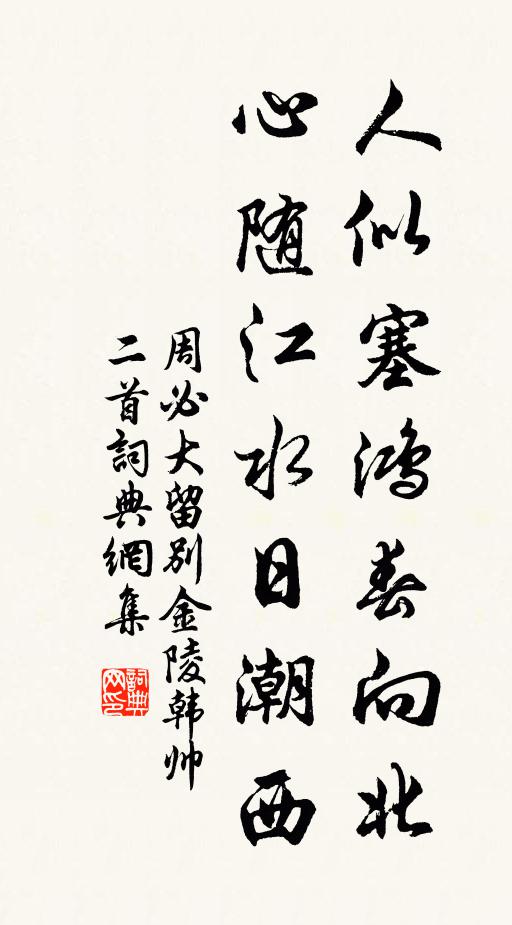 人似塞鸿春向北
心随江水日潮西
周必大留别金陵韩帅
二首詞典網集
詞典
网印